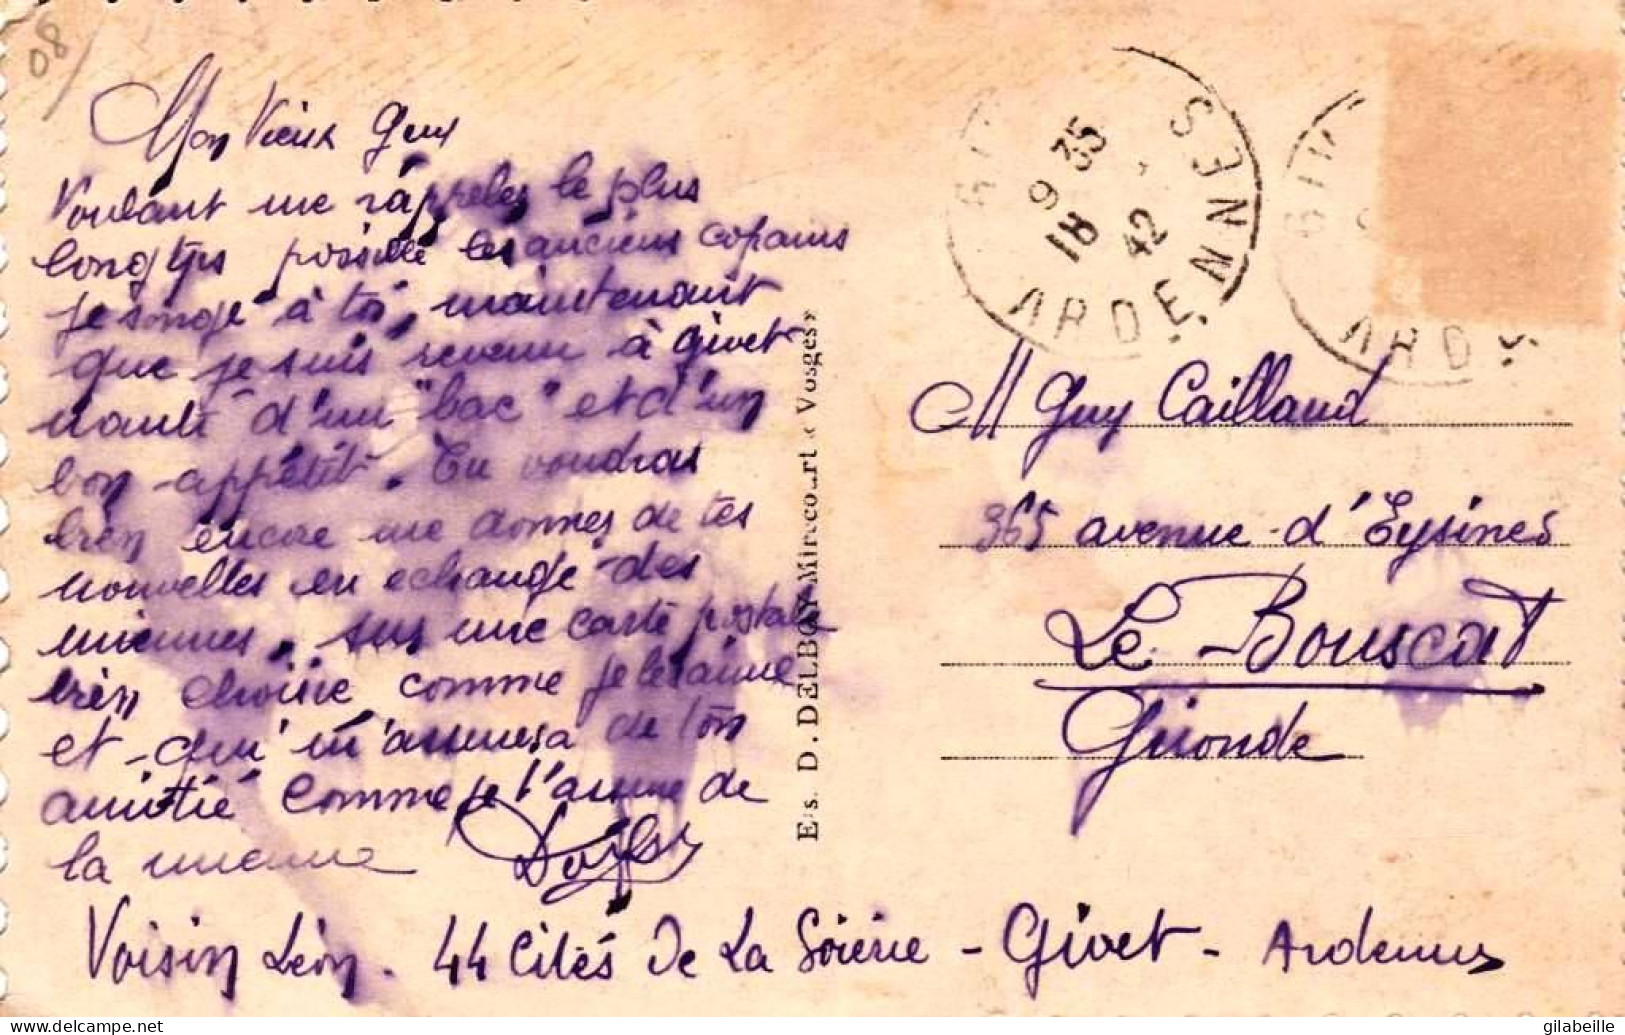 08
Mon Vieux Guy
Voulant me rappeler le plus
longtps possible les anciens copains
je songe à toi, maintenant
que je suis revenu à Givet
nanti d'un "bac" et d'un
bon appétit. Tu voudras
bien encore me donner de tes
nouvelles en echange des
miennes, sur une carte postale
bien choisie comme je les aime
et qui m'assurera de ton
amitié comme je t'assure de
la mienne
Voisin Léon. 44 Cités De La Soierie - Givet - Ardennes
Ets. D. DELBOY-Mirecourt (Vosges)
GIVET
9 35
18 42
ARDENNES
GIV
ARD
M Guy Cailland
365 avenue d'Eysines
Le Bouscat
Gironde
gilabeille
www.delcampe.net